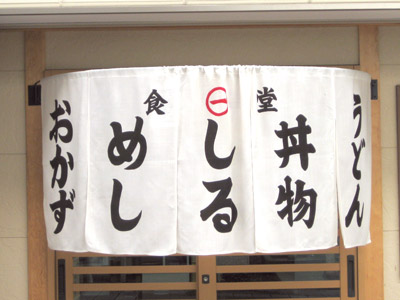 おかず
めし
しる
丼物
うどん
食㊀堂